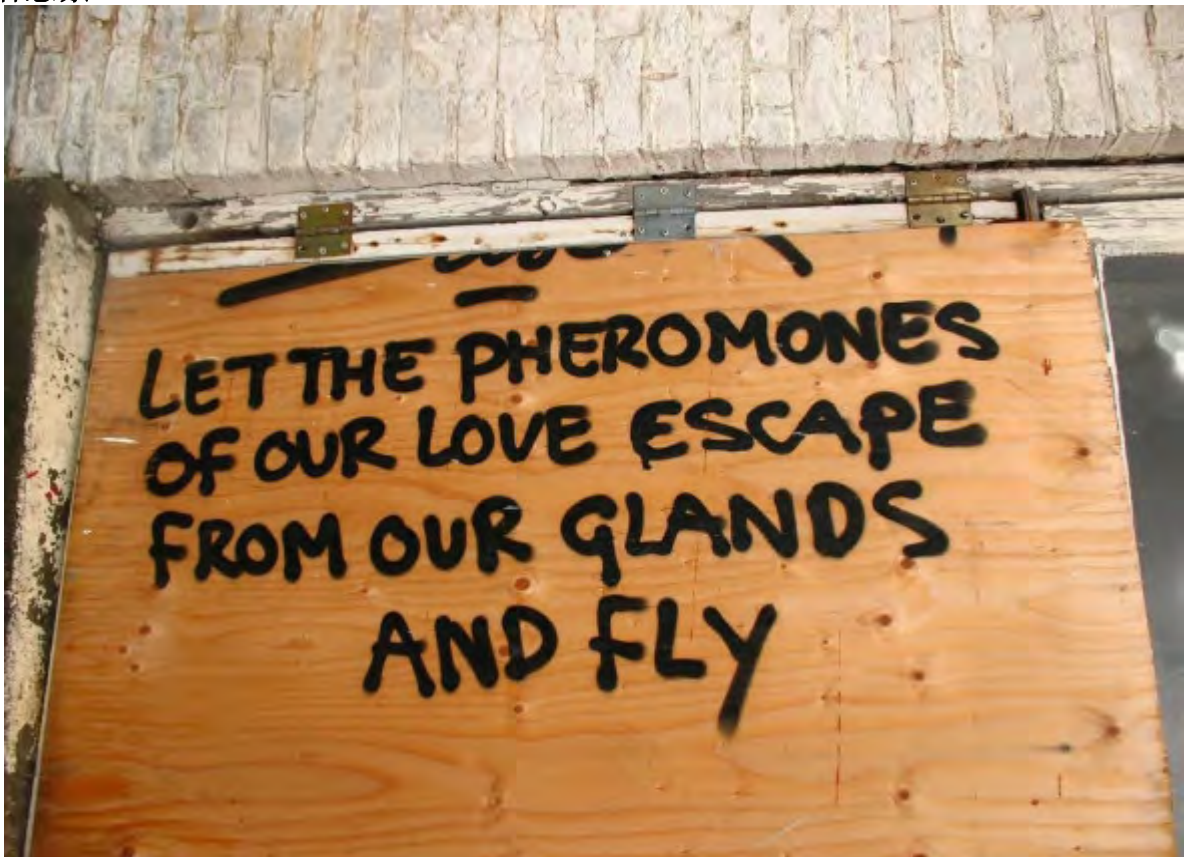 LET THE PHEROMONES
OF OUR LOVE ESCAPE
FROM OUR GLANDS
AND FLY